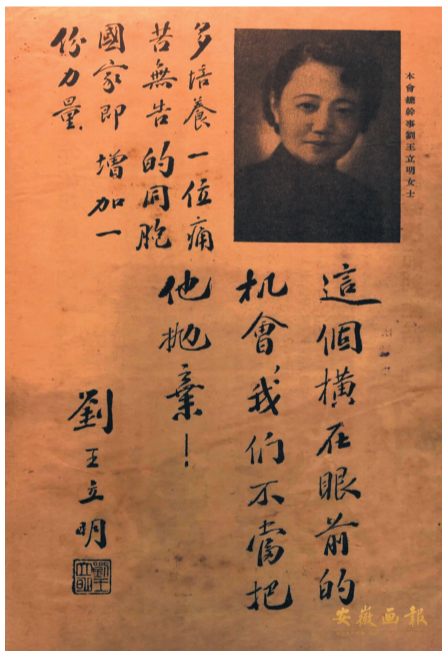 本會總幹事劉王立明女士
多培養一位痛
苦無告的同胞
國家即增加一
份力量
這個橫在眼前的
机會、我们不當把
他抛棄！
劉王立明
劉王立明
安徽画报